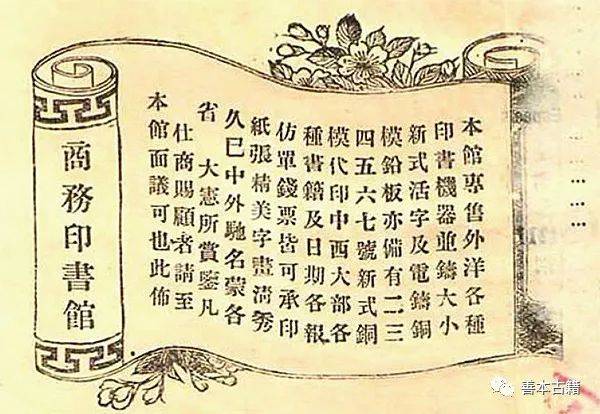 本館專售外洋各種
印書機器並鑄大小
新式活字及電鑄銅
模鉛板亦備有一二三
四五六七號新式銅
模代印中西大部各
種書籍及日期各報
仿單錢票皆可承印
紙張精美字畫清秀
久已中外馳名蒙各
省 大憲所賞鑒凡
仕商賜顧者請至
本館面議可也此佈
商務印書館
善本古籍